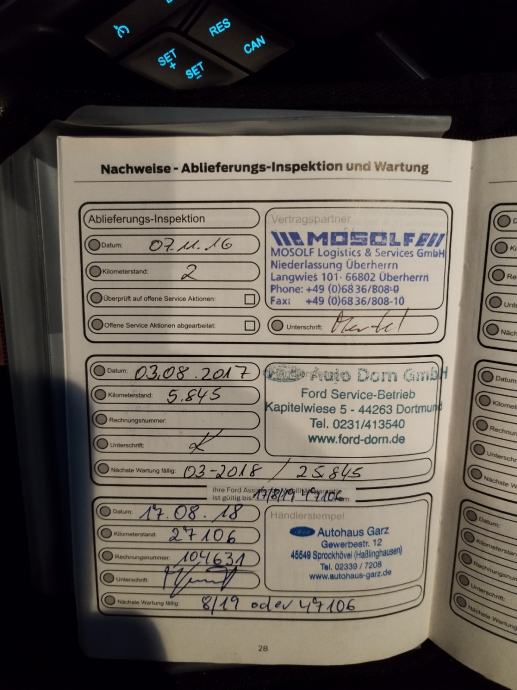 RES
CAN
SET
+
SET
Nachweise - Ablieferungs-Inspektion und Wartung
Ablieferungs-Inspektion
Datum: 07.11.16
Kilometerstand: 2
Überprüft auf offene Service Aktionen:
Offene Service Aktionen abgearbeitet:
Vertragspartner
MOSOLF
MOSOLF Logistics & Services GmbH
Niederlassung Überherrn
Langwies 101· 66802 Überherrn
Phone: +49 (0)68 36/808-0
Fax: +49 (0)68 36/808-10
Unterschrift:
Datum: 03.08.2017
Kilometerstand: 5.845
Rechnungsnummer:
Unterschrift:
Nächste Wartung fällig: 03-2018 / 25.845
Ford Auto Dorn GmbH
Ford Service-Betrieb
Kapitelwiese 5 - 44263 Dortmund
Tel. 0231/413540
www.ford-dorn.de
Ihre Ford
ist gültig bis 17/8/19 47106
Datum: 17.08.18
Kilometerstand: 27106
Rechnungsnummer: 104631
Unterschrift:
Nächste Wartung fällig: 8/19 oder 47106
Händlerstempel
Ford Autohaus Garz
Gewerbestr. 12
45549 Sprockhövel (Haßlinghausen)
Tel. 02339 / 7208
www.autohaus-garz.de
28